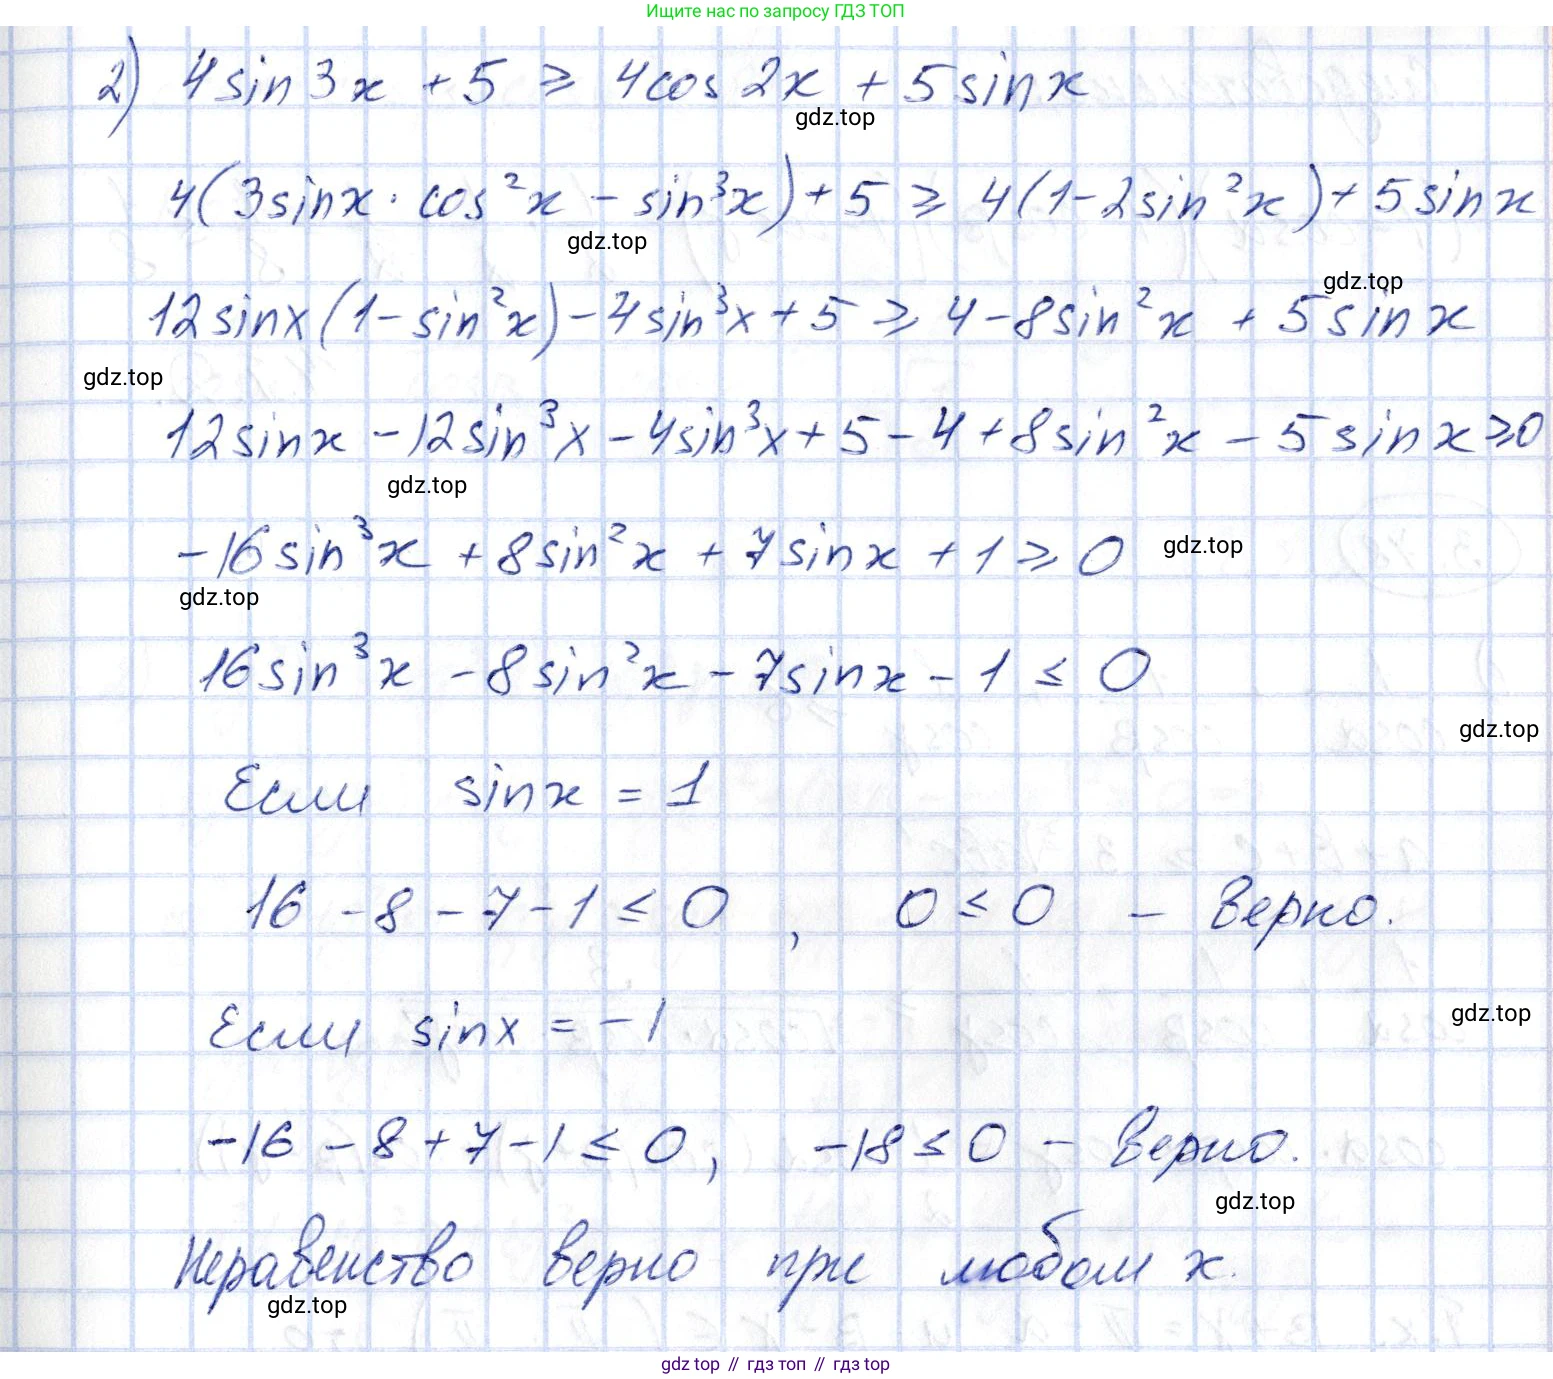 Ищите нас по запросу ГДЗ ТОП
2) 4sin3x + 5 ⩾ 4cos2x + 5sinx
gdz.top
4(3sinx · cos²x − sin³x) + 5 ⩾ 4(1−2sin²x) + 5sinx
gdz.top
gdz.top
12sinx(1−sin²x) − 4sin³x + 5 ⩾ 4 − 8sin²x + 5sinx
gdz.top
12sinx − 12sin³x − 4sin³x + 5 − 4 + 8sin²x − 5sinx ⩾ 0
gdz.top
−16sin³x + 8sin²x + 7sinx + 1 ⩾ 0
gdz.top
gdz.top
16sin³x − 8sin²x − 7sinx − 1 ≤ 0
gdz.top
Если sinx = 1
16 − 8 − 7 − 1 ≤ 0 , 0 ≤ 0 − верно.
Если sinx = −1
gdz.top
−16 − 8 + 7 − 1 ≤ 0, −18 ≤ 0 − верно.
gdz.top
Неравенство верно при любом x.
gdz.top
gdz top // гдз топ // gdz top